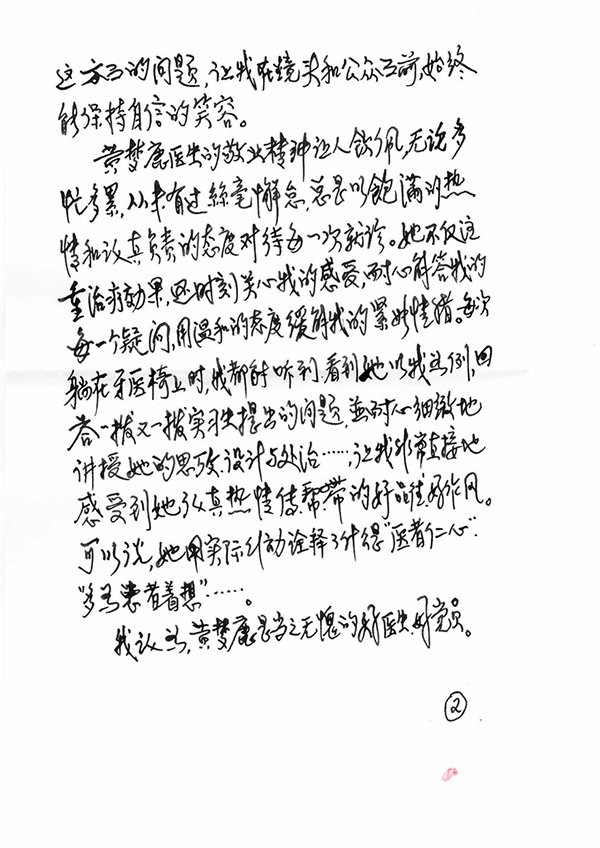 这方面的问题，让我在镜头和公众面前，始终
能保持自信的笑容。
黄梦康医生的敬业精神让人钦佩，无论多
忙多累，从未有过丝毫懈怠，总是以饱满的热
情和认真负责的态度对待每一次就诊。她不仅注
重治疗效果，还时刻关心我的感受，耐心解答我的
每一个疑问，用温和的态度缓解我的紧张情绪。每次
躺在牙医椅上时，我都能听到、看到她以我为例，回
答一拨又一拨实习生提出的问题，并耐心细致地
讲授她的思路、设计与处治……，让我非常直接地
感受到她认真热情传、帮、带的好品性、好作风。
可以说，她用实际行动诠释了什么是“医者仁心”、
“多为患者着想”……。
我认为，黄梦康是当之无愧的好医生、好党员。
②